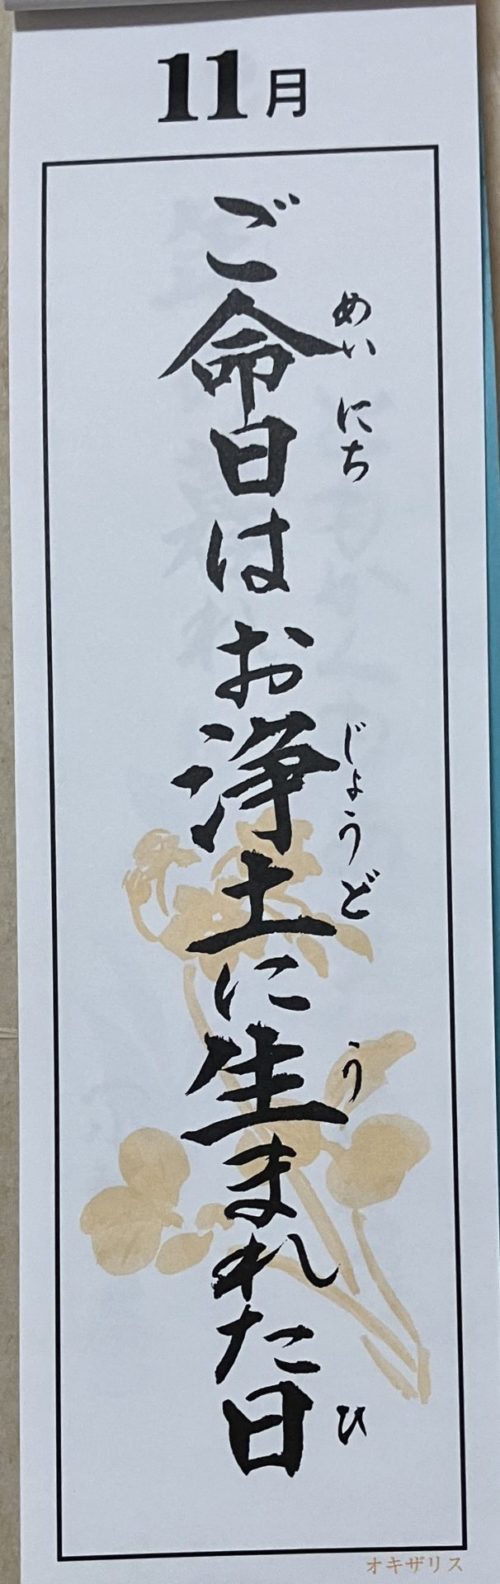 11月
ご命日はお浄土に生まれた日
めいにち
じょうど
う
ひ
オキザリス